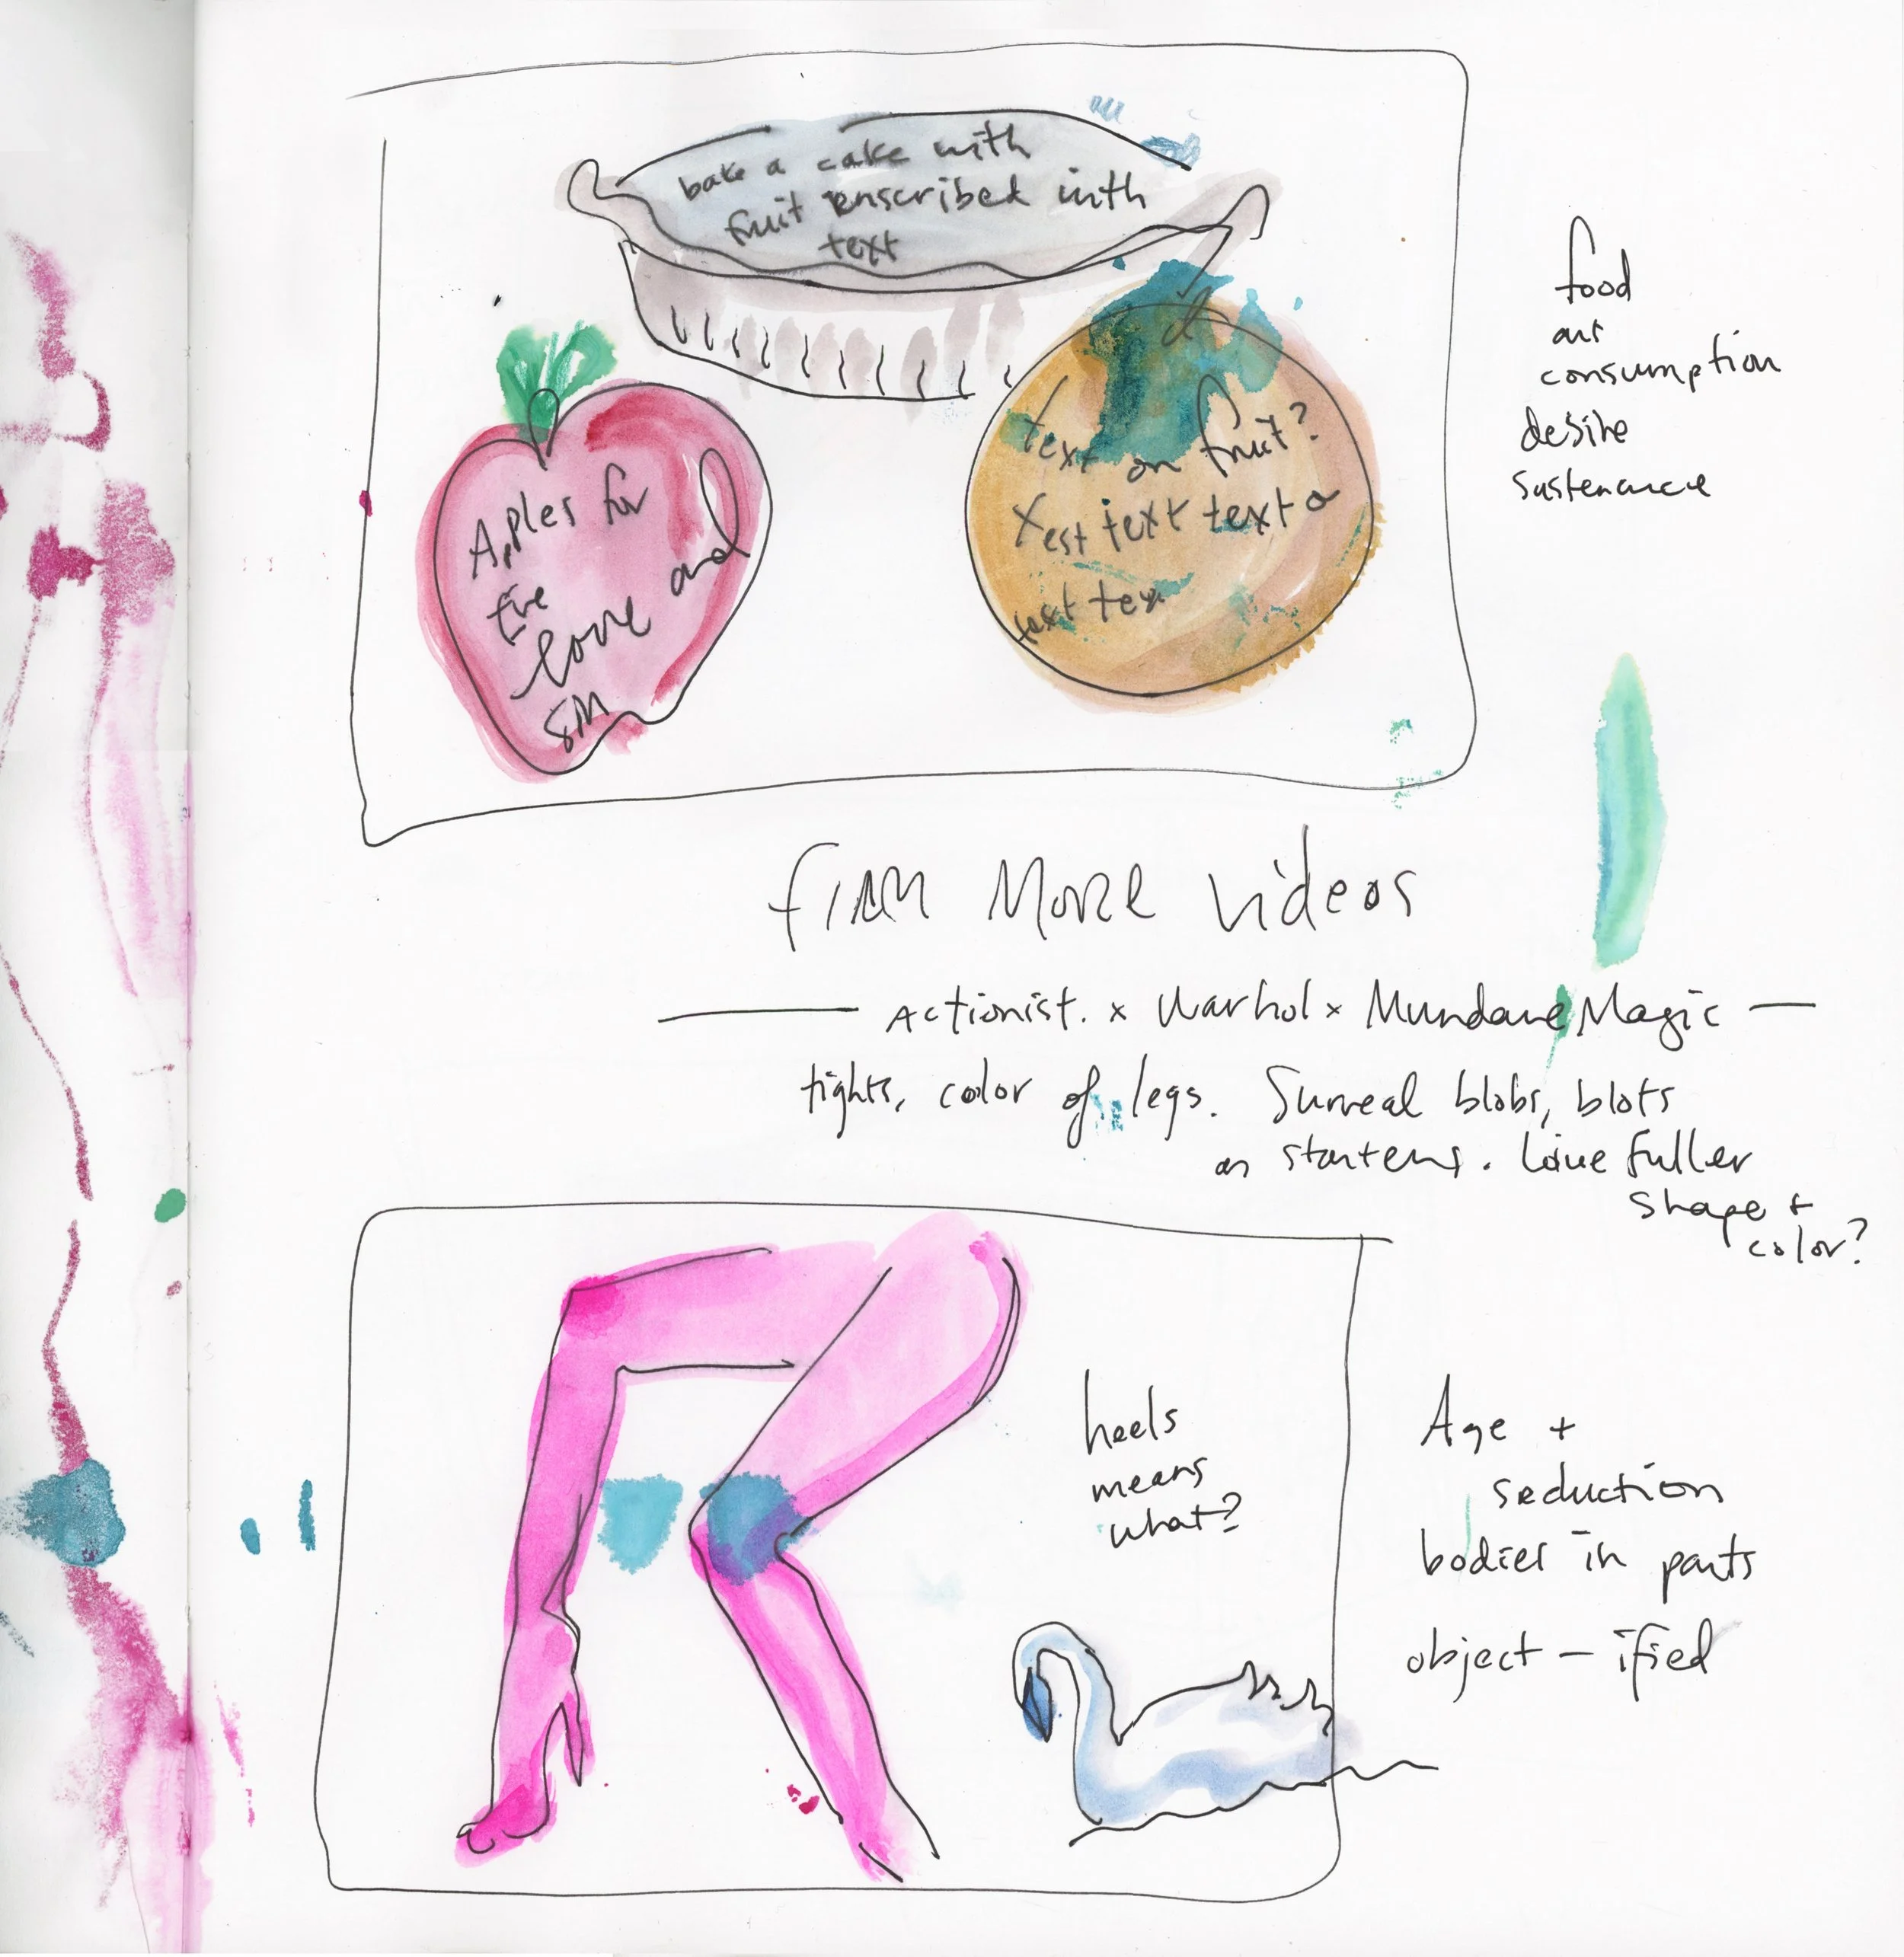 bake a cake with
fruit enscribed with
text
Apples for
Eve
love and
sin
text on fruit?
text text text
text text
food
art
consumption
desire
sustenance
film more videos
Actionist. x Warhol x Mundane Magic —
tights, color of legs. Surreal blobs, blots
as starters. Love fuller
shape +
color?
heels
means
what?
Age +
seduction
bodies in parts
object – ified